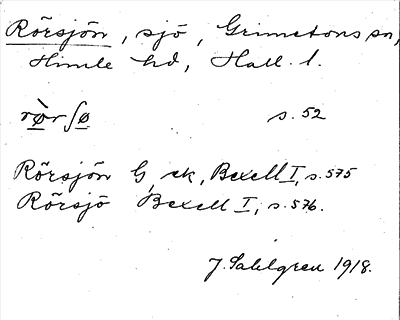 Rörsjön, sjö, Grimetons sn,
Himle hd, Hall. l.
rø̀r ʃø s. 52
Rörsjön G, ek, Bexell I, s. 575
Rörsjö Bexell I, s. 576.
J. Sahlgren 1918.